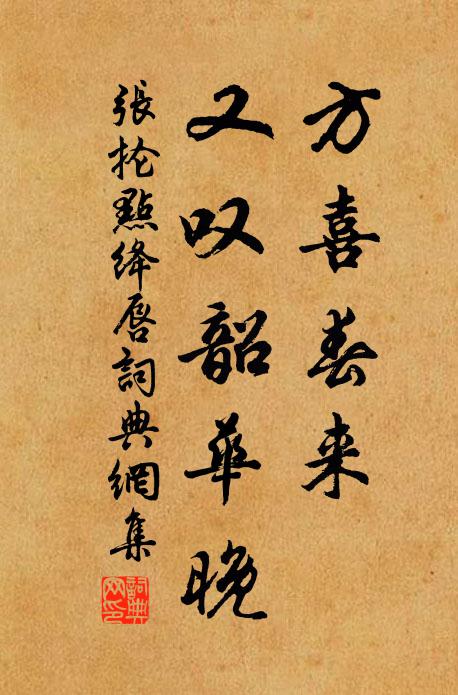 方喜春来
又叹韶华晚
張抡點绛唇詞典網集
詞典網印